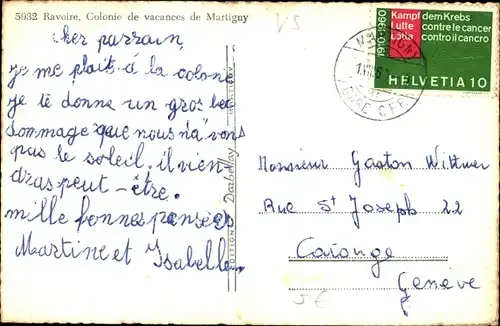 5932 Ravoire, Colonie de vacances de Martigny
VS
cher parrain
je me plait à la colonie
je te donne un gros bec
dommage que nous n'a vons
pas le soleil. il vien-
dras peut-être.
mille bonnes pensées
Martine et Isabelle.
Darbellay
MARTIGNY
1910-1960
Kampf dem Krebs
Lutte contre le cancer
Lotta contro il cancro
HELVETIA 10
Monsieur Gaston Wittwer
Rue St Joseph 22
Carouge
Genève
5 €